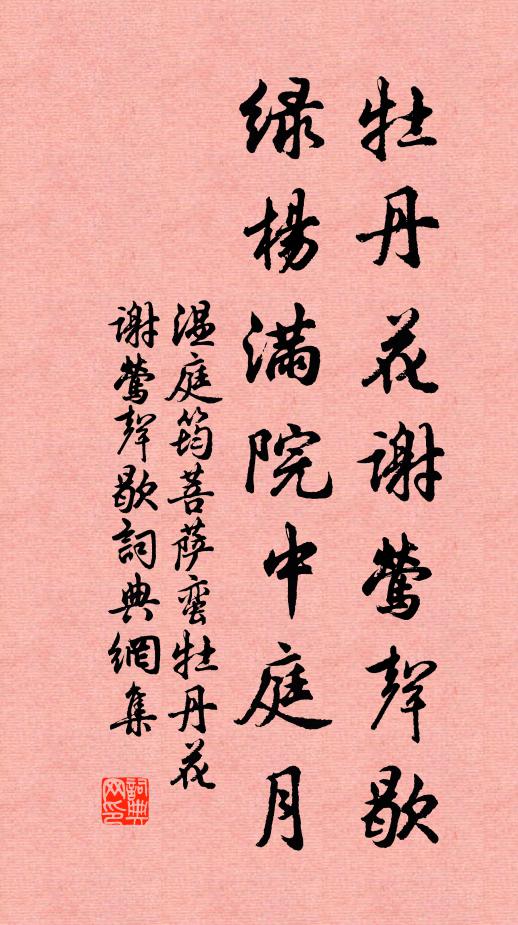 牡丹花谢莺聲歇
绿楊满院中庭月
温庭筠菩萨蛮牡丹花
谢莺聲歇詞典網集
詞典网印